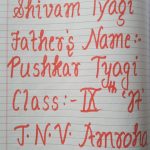 Shivam Tyagi
Father's Name:-
Pushkar Tyagi
Class:- IXth 'A'
J.N.V. Amroha